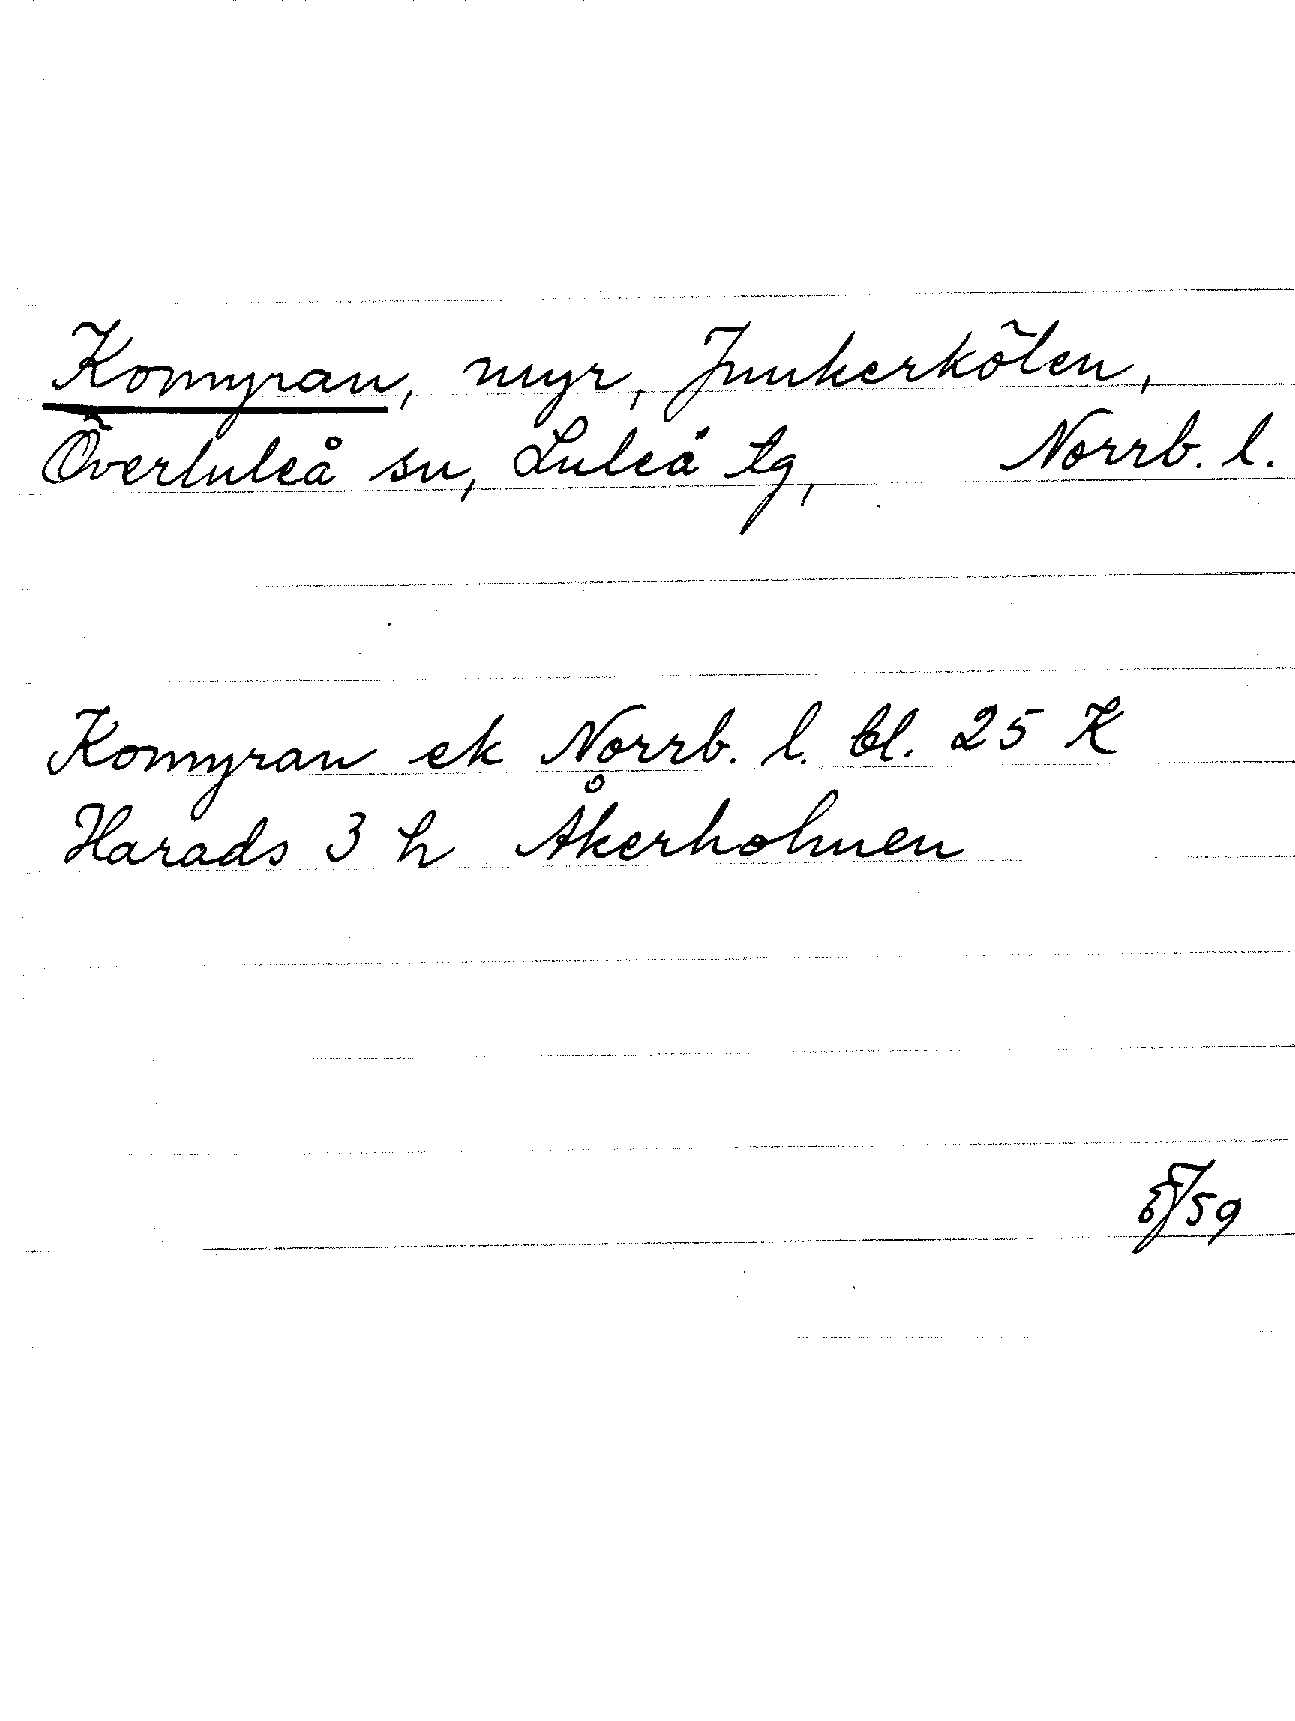 Komyran, myr, Junkerkölen,
Överluleå sn, Luleå tg, Norrb. l.
Komyran ek Norrb. l. bl. 25 K
Harads 3 h Åkerholmen
/59